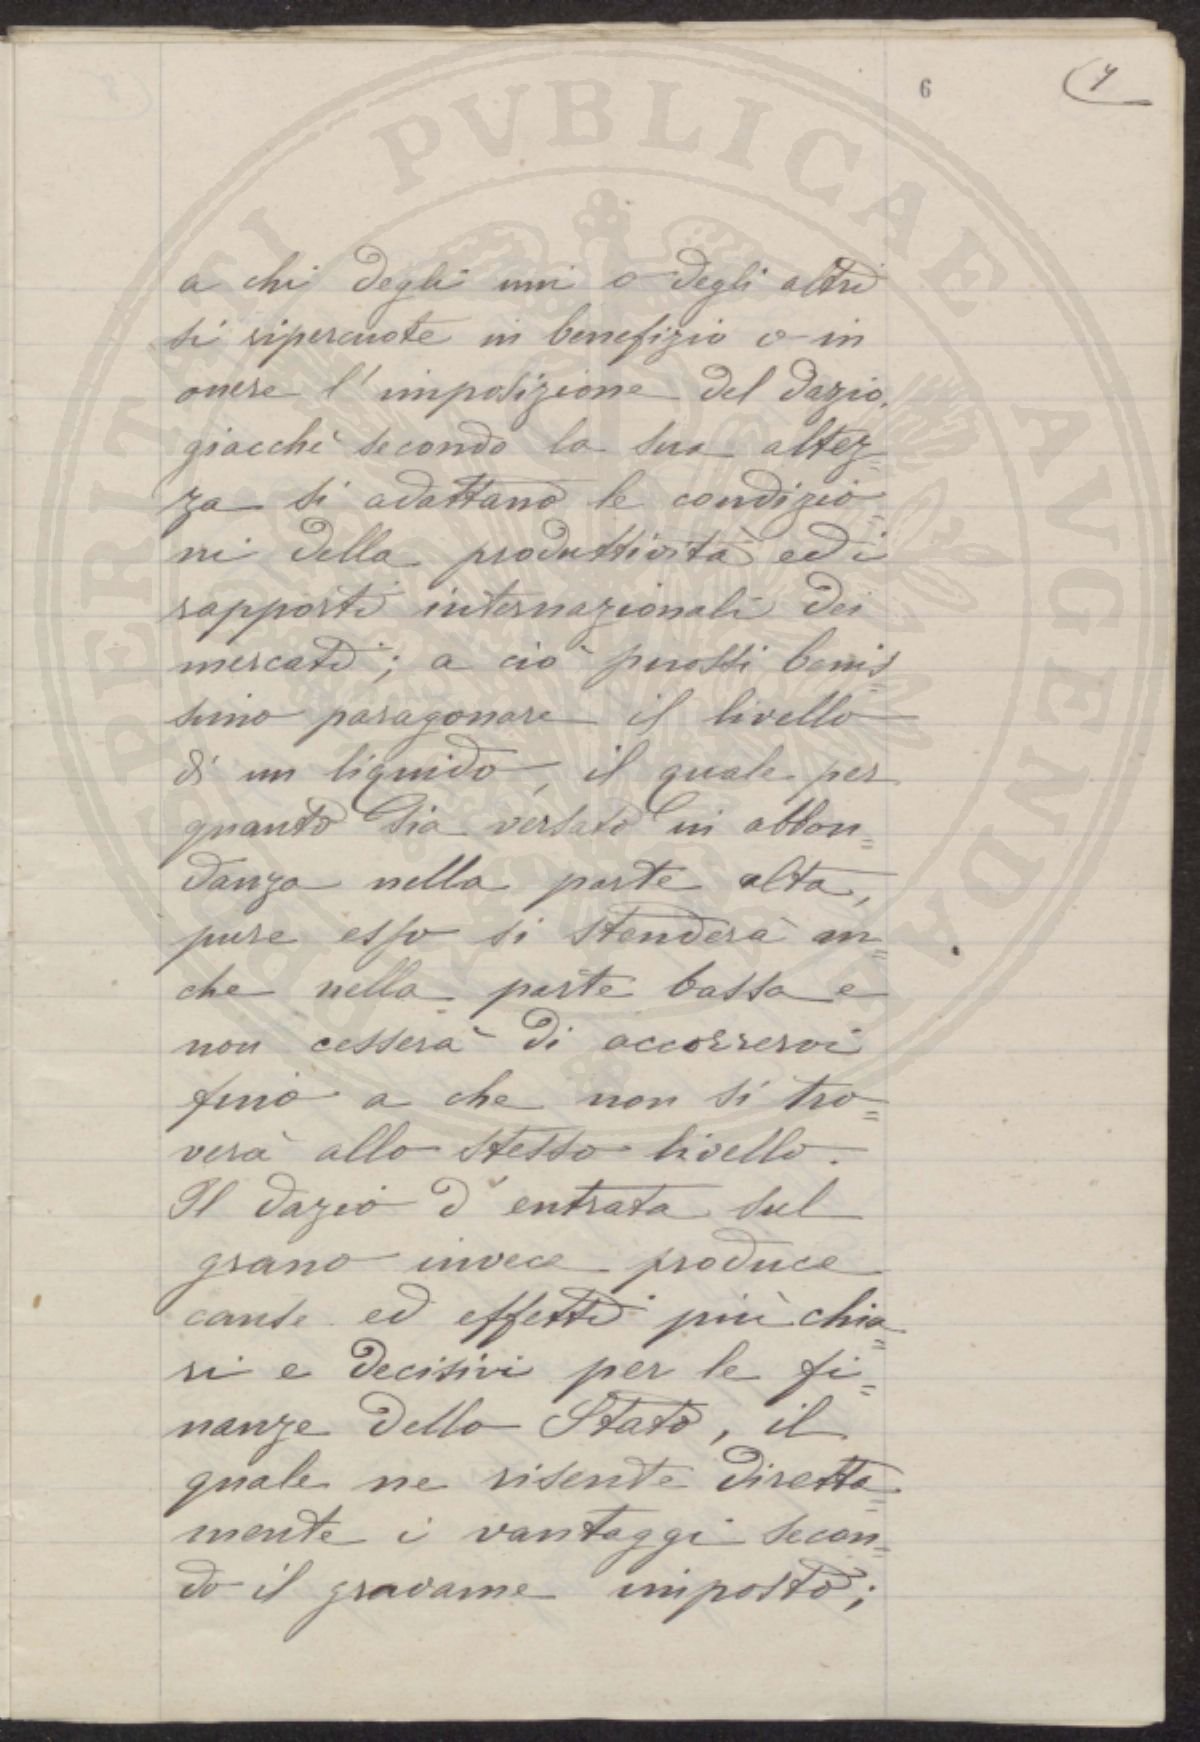 6
7
a chi degli uni o degli altri
si ripercuote in benefizio o in
onere l'imposizione del dazio,
giacchè secondo la sua altez=
za si adattano le condizio=
ni della produttività ed i
rapporti internazionali dei
mercati; a ciò puossi benis=
simo paragonare il livello
di un liquido, il quale per
quanto sia versato in abbon=
danza nella parte alta,
pure esso si stenderà an=
che nella parte bassa e
non cesserà di accorrervi
fino a che non si tro=
verà allo stesso livello.
Il dazio d'entrata sul
grano invece produce
cause ed effetti più chia=
ri e decisivi per le fi=
nanze dello Stato, il
quale ne risente diretta=
mente i vantaggi secon=
do il gravame imposto;
PROSPERITATI PVBLICAE AVGENDAE